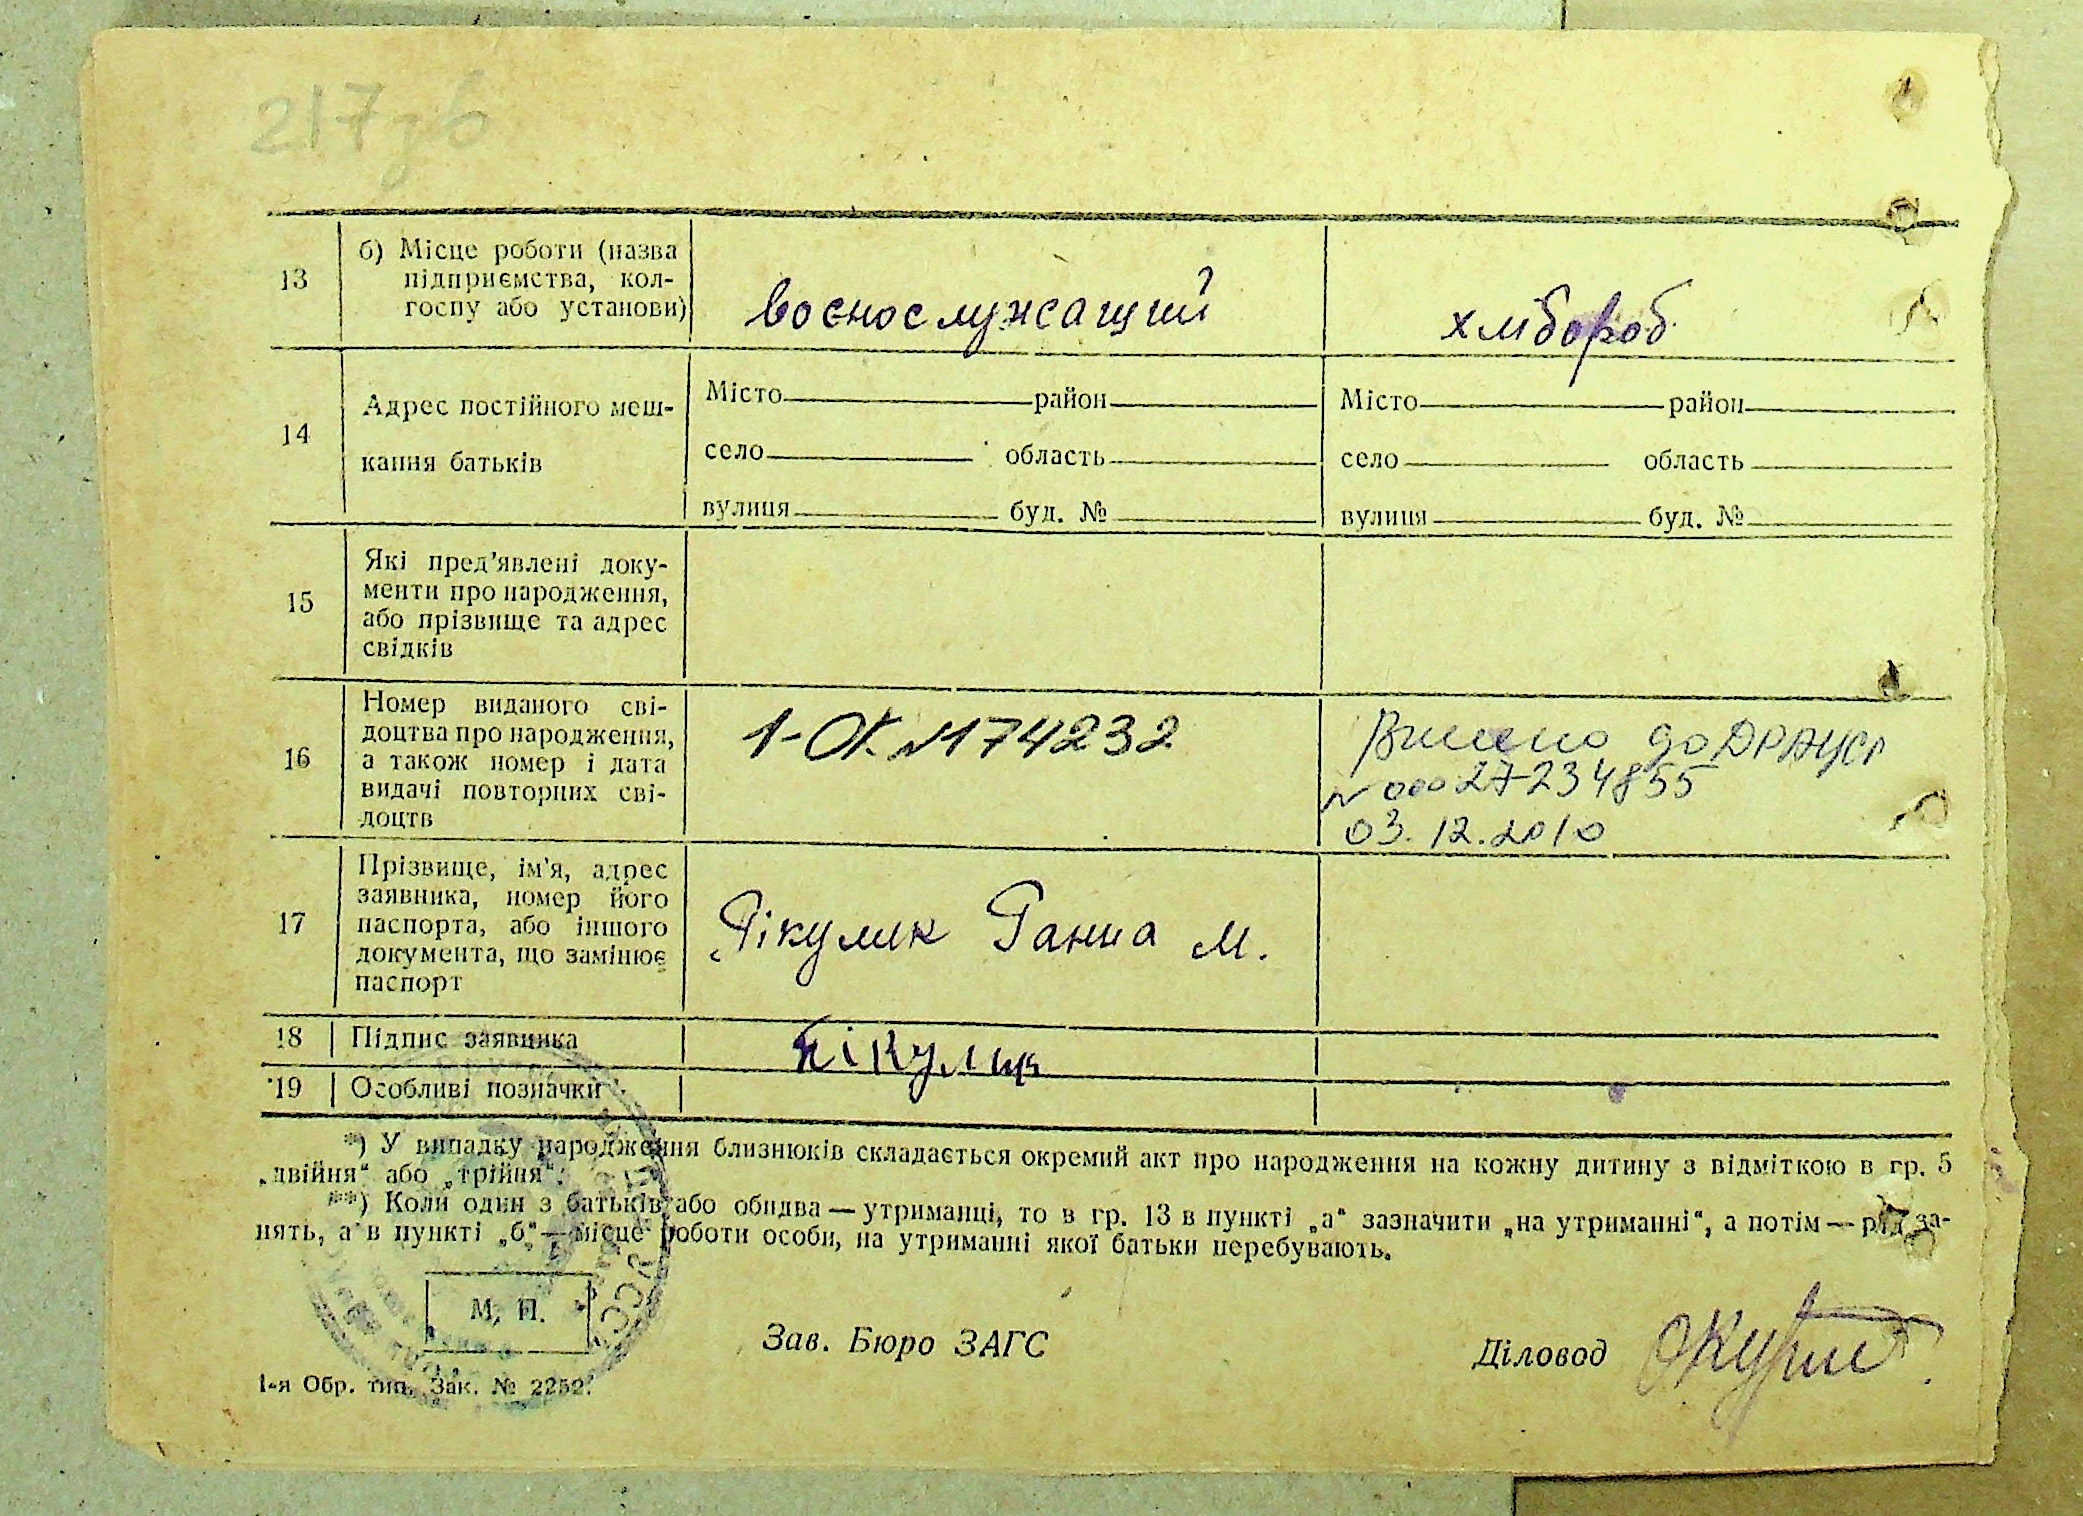 217зв
13
б) Місце роботи (назва
підприємства, кол-
госпу або установи)
воєнослужащий
хлібороб
14
Адрес постійного меш-
кання батьків
Місто район
село область
вулиця буд. №
Місто район
село область
вулиця буд. №
15
Які пред'явлені доку-
менти про народження,
або прізвище та адрес
свідків
16
Номер виданого сві-
доцтва про народження,
а також номер і дата
видачі повторних сві-
доцтв
1-ОК №174232
Внесено до ДРАЦСГ
№ 00027234855
03.12.2010
17
Прізвище, ім'я, адрес
заявника, номер його
паспорта, або іншого
документа, що замінює
паспорт
Пікулик Ганна М.
18
Підпис заявника
Пікулик
19
Особливі позначки
*) У випадку народження близнюків складається окремий акт про народження на кожну дитину з відміткою в гр. 5
„двійня“ або „трійня“.
**) Коли один з батьків або обидва — утриманці, то в гр. 13 в пункті „а“ зазначити „на утриманні“, а потім — рід за-
нять, а в пункті „б“ — місце роботи особи, на утриманні якої батьки перебувають.
М. П.
Зав. Бюро ЗАГС
Діловод
1-я Обр. тип. Зак. № 2252.